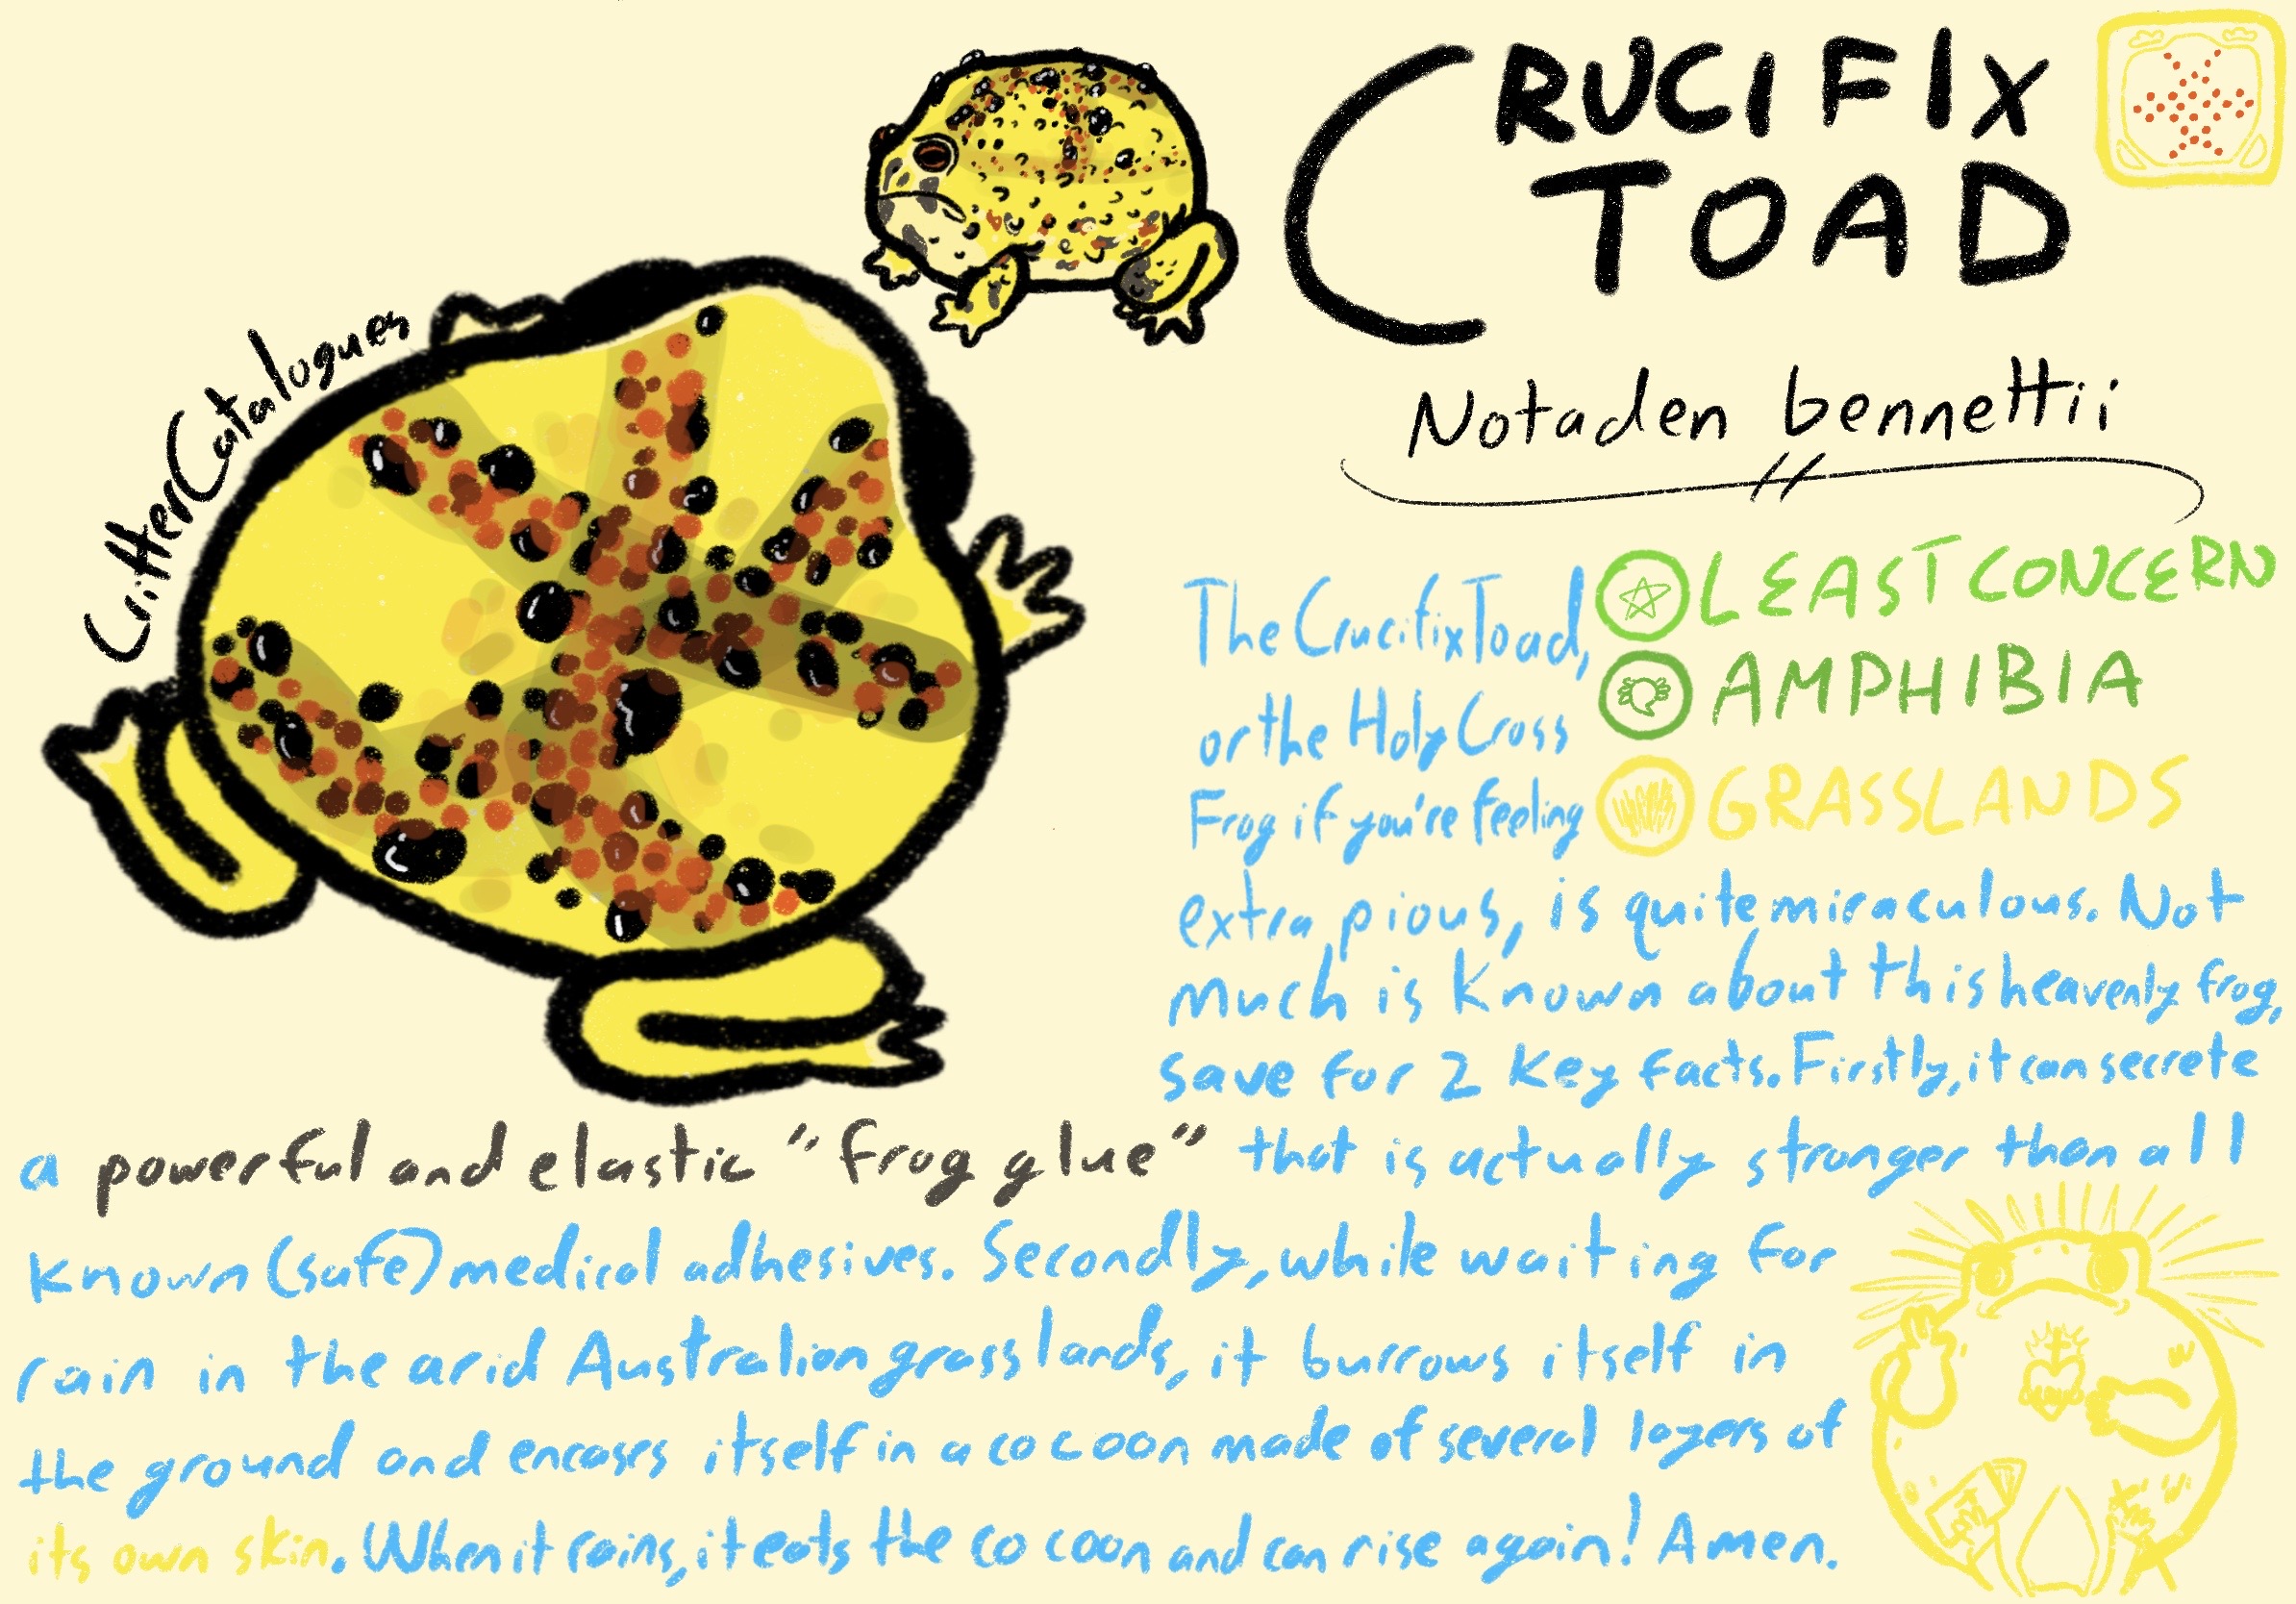 CRUCIFIX
TOAD
Notaden bennettii
CritterCatalogues
LEAST CONCERN
AMPHIBIA
GRASSLANDS
The Crucifix Toad,
or the Holy Cross
Frog if you're feeling
extra pious, is quite miraculous. Not
much is known about this heavenly frog,
save for 2 key facts. Firstly, it can secrete
a powerful and elastic "frog glue" that is actually stronger than all
known (safe) medical adhesives. Secondly, while waiting for
rain in the arid Australian grasslands, it burrows itself in
the ground and encases itself in a cocoon made of several layers of
its own skin. When it rains, it eats the cocoon and can rise again! Amen.